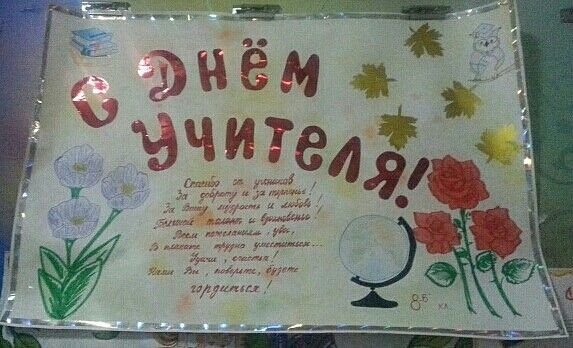 С Днём
Учителя!
Спасибо от учеников
За доброту и за терпенье!
За Вашу мудрость и любовь!
Большой талант и вдохновенье!
Всем пожеланьям, увы,
В плакате трудно уместиться...
Удачи, счастья!
Вами Вы, поверьте, будете
гордиться!
8 Б кл.